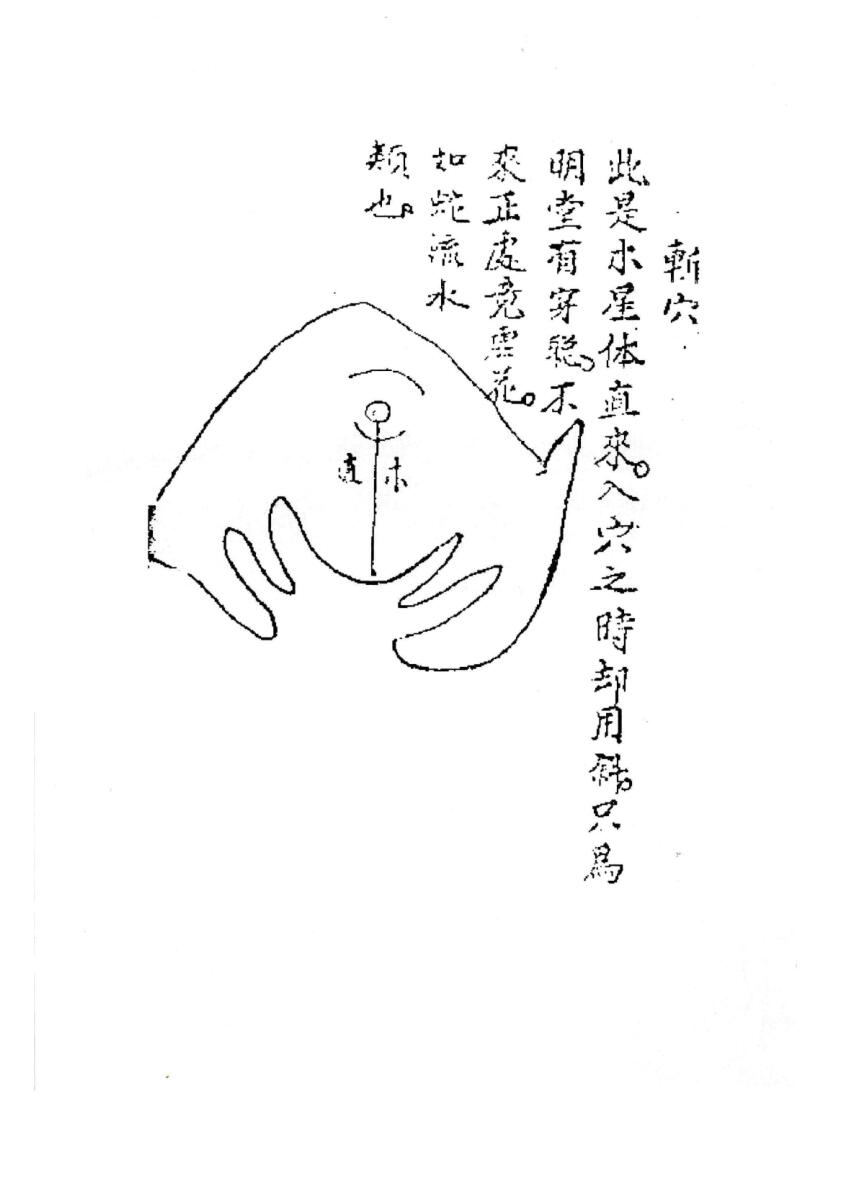 斬穴
此是木星体直來。入穴之時却用斜。只爲
明堂有穿聡。不
來正處竟虚花。
如蛇流水
類也。
直木